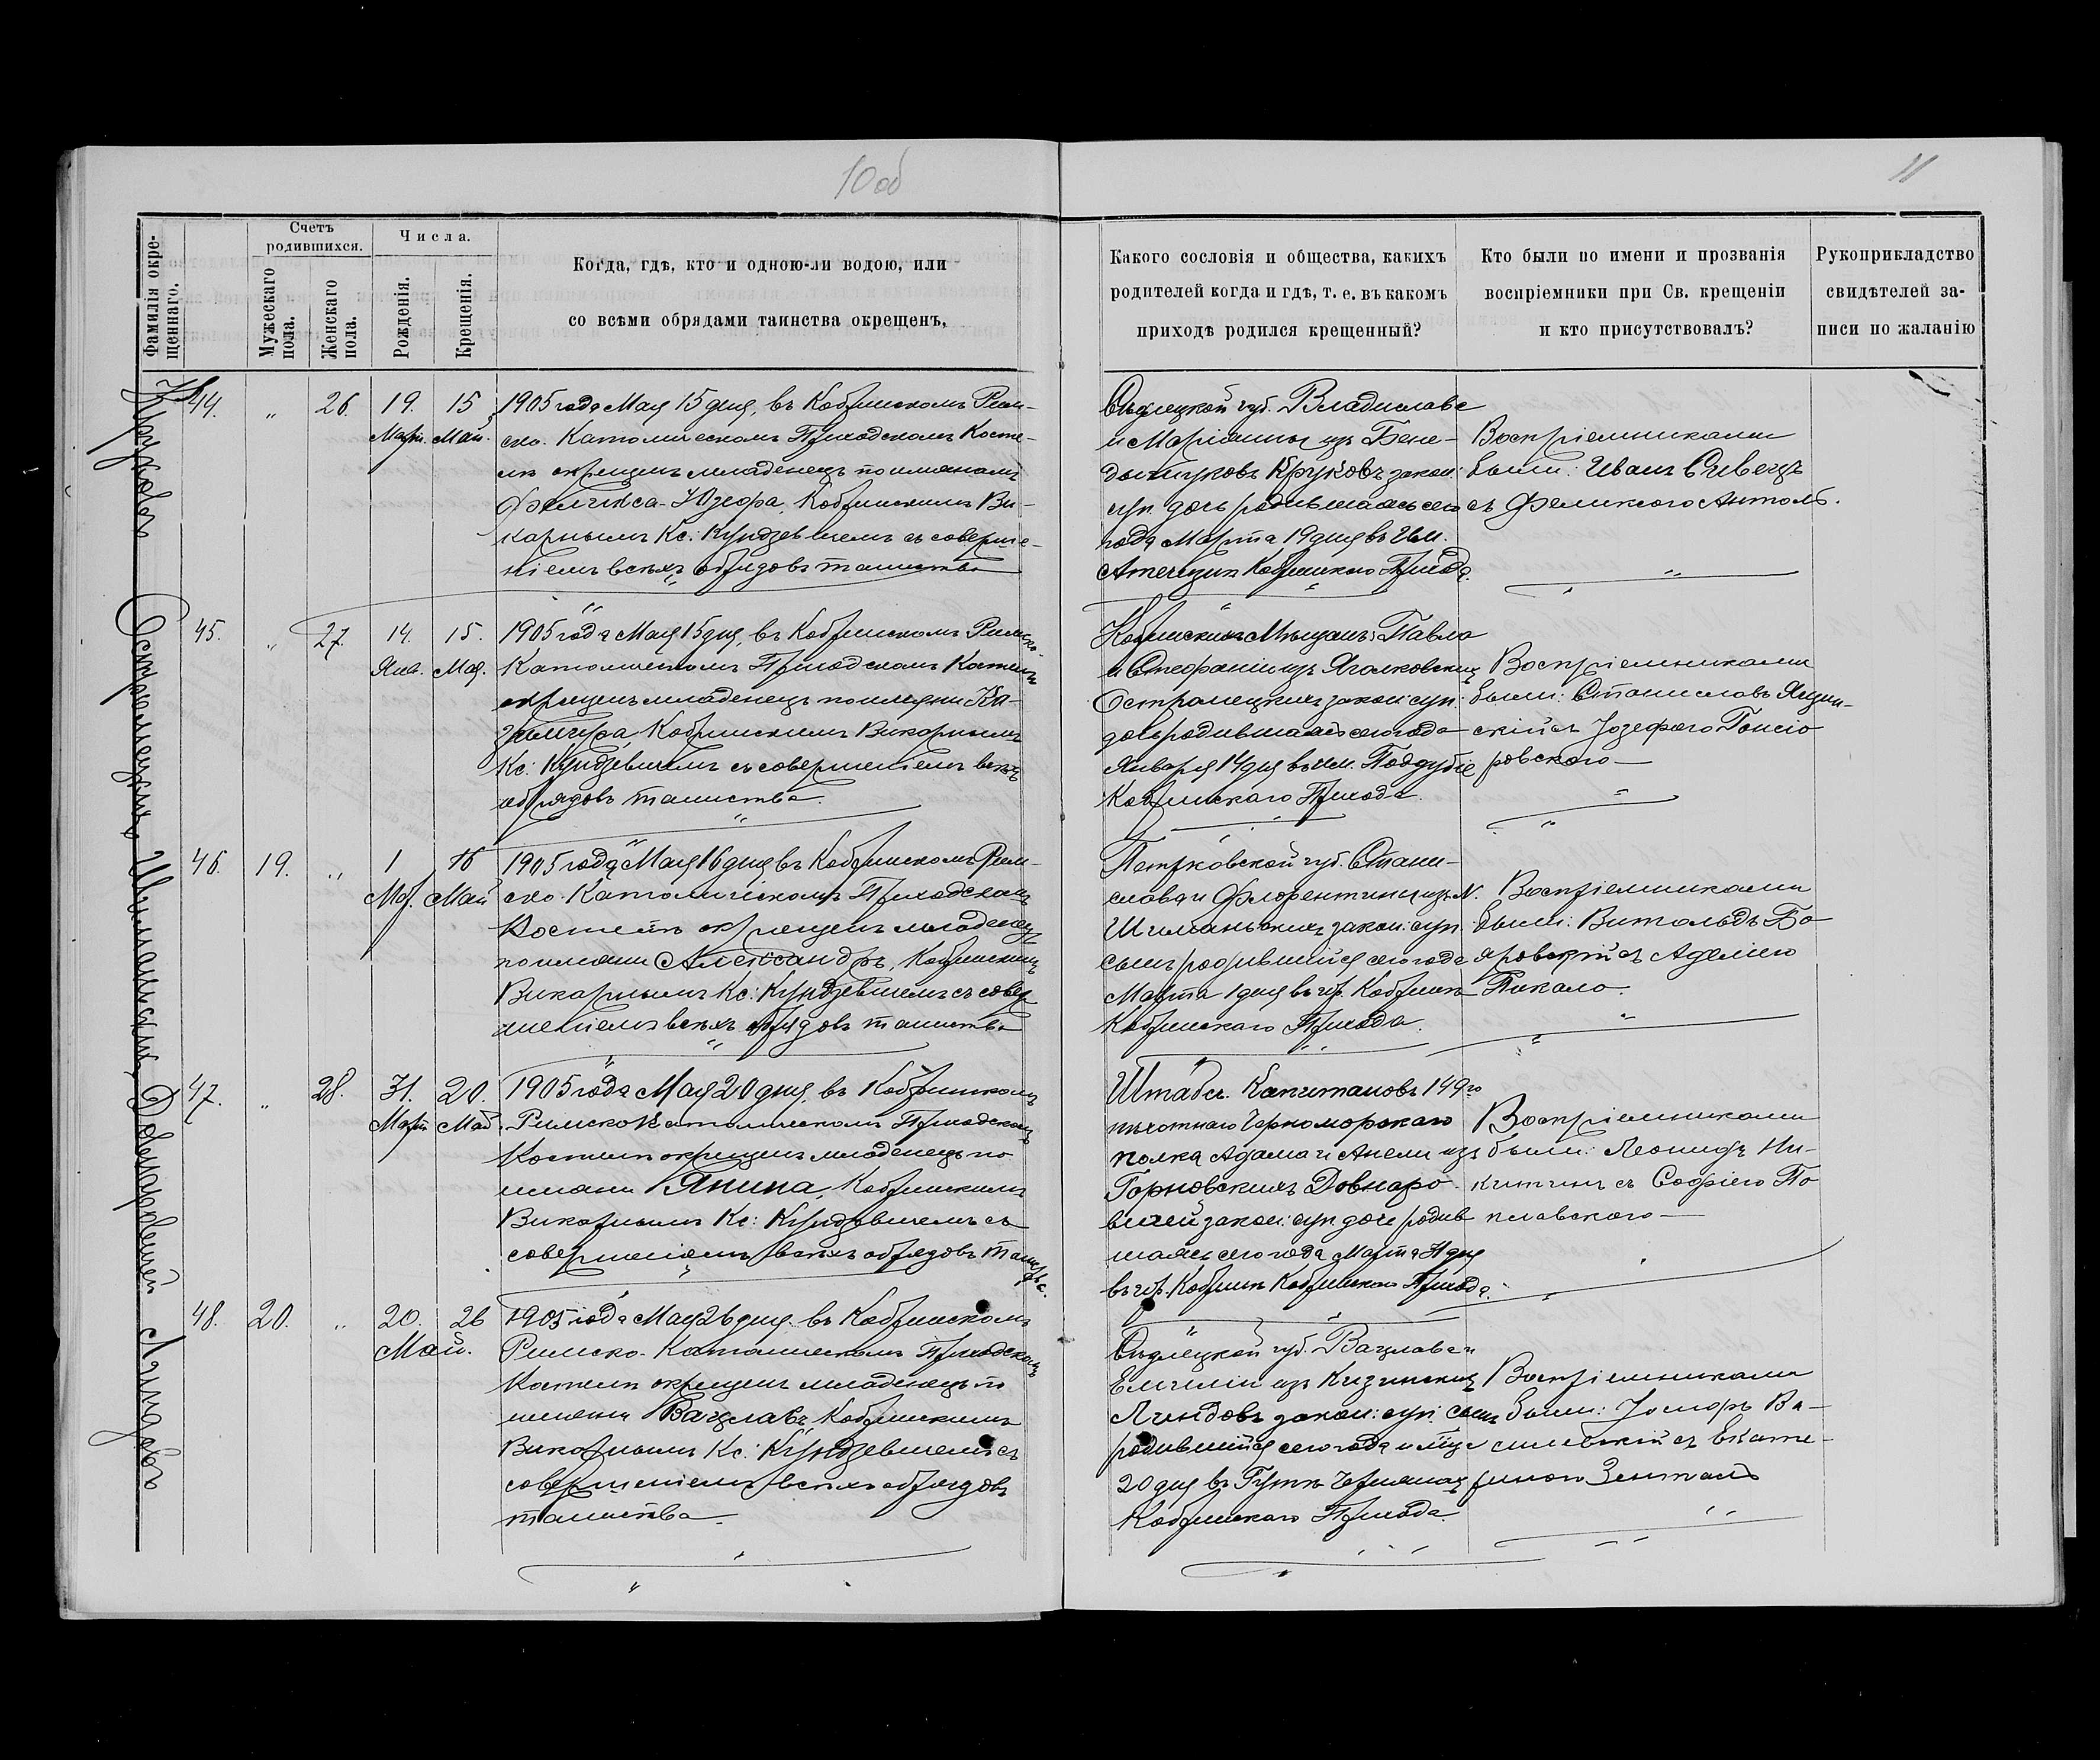 10 об
11
Фамилія окре-
щеннаго.
Счетъ
родившихся.
Мужескаго
пола.
Женскаго
пола.
Числа.
Рожденія.
Крещенія.
Когда, гдѣ, кто и одною-ли водою, или
со всѣми обрядами таинства окрещенъ,
Какого сословія и общества, какихъ
родителей когда и гдѣ, т. е. въ какомъ
приходѣ родился крещенный?
Кто были по имени и прозванія
воспріемники при Св. крещеніи
и кто присутствовалъ?
Рукоприкладство
свидѣтелей за-
писи по жаланію
Круковъ
44. " 26. 19. 15
Март. Май.
1905 года Мая 15 дня, въ Кобринскомъ Рим-
ско-Католическомъ Приходскомъ Косте-
лѣ окрещенъ младенецъ по именамъ
Юзефа, Кобринскимъ Ви-
карнымъ Кс: Кундзевичемъ съ соверше-
ніемъ всѣхъ обрядовъ таинства
Сѣдлецкой губ. Владислава
и Маріанны изъ Бене-
Круковъ закон:
суп. дочь родившаяся сего
года Марта 19 дня въ Им.
Кобринскаго Прихода.
Воспріемниками
были: Иванъ Сивецъ
съ Феликсою Антолб.
Остромецкихъ
45. " 27. 14. 15.
Янв. Мая.
1905 года Мая 15 дня, въ Кобринскомъ Римско-
Католическомъ Приходскомъ Костелѣ
окрещенъ младенецъ по имени Ка-
зимира, Кобринскимъ Викарнымъ
Кс: Кундзевичемъ съ совершеніемъ всѣхъ
обрядовъ таинства.
Кобринскихъ Мѣщанъ: Павла
и Стефаніи изъ Яголковскихъ
Остромецкихъ закон: суп:
дочь родившаяся сего года
Января 14 дня въ им. Поддубіе
Кобринскаго Прихода.
Воспріемниками
были: Станиславъ
скій съ Іозефою Гонсіо
ровскою
Шиманьскихъ
46. 19. " 1 16
Мар. Май
1905 года Мая 16 дня въ Кобринскомъ Рим-
ско-Католическомъ Приходскомъ
Костелѣ окрещенъ младенецъ
по имени Александръ, Кобринскимъ
Викарнымъ Кс: Кундзевичемъ съ совер
шеніемъ всѣхъ обрядовъ таинства
Петрковской губ. Стани-
слава и Флорентины изъ N.
Шиманьскихъ закон: суп.
сынъ родившійся сего года
Марта 1 дня въ гр. Кобринѣ
Кобринскаго Прихода.
Воспріемниками
были: Витольдъ Бо
яровскій съ Аделіею
Пикало.
Довнаровичей
47. " 28. 31. 20.
Март. Май.
1905 года Мая 20 дня, въ Кобринскомъ
Римско Католическомъ Приходскомъ
Костелѣ окрещенъ младенецъ по
имени Янина, Кобринскимъ
Викарнымъ Кс: Кундзевичемъ съ
совершеніемъ всѣхъ обрядовъ таинства.
Штабсъ. Капитановъ 149го
пѣхотнаго Черноморскаго
полка Адама и Анели изъ
Горновскихъ Довнаро-
вичей закон: суп. дочь родив
шаяся сего года Марта 31 дня
въ гр. Кобринѣ Кобринскаго Прихода.
Воспріемниками
были: Леонидъ Ни-
китинъ съ Софіею По
плавскою
Линдовъ
48. 20. " 20. 26
Май.
1905 года Мая 26 дня въ Кобринскомъ
Римско-Католическомъ Приходскомъ
Костелѣ окрещенъ младенецъ по
имени Вацлавъ, Кобринскимъ
Викарнымъ Кс: Кундзевичемъ съ
совершеніемъ всѣхъ обрядовъ
таинства.
Сѣдлецкой губ. Вацлава и
Емиліи изъ
Линдовъ закон: суп: сынъ
родившійся сего года и мца
20 дня въ Гутѣ
Кобринскаго Прихода.
Воспріемниками
были: Іосифъ Ва-
силевскій съ Екате-
риною Зенталь